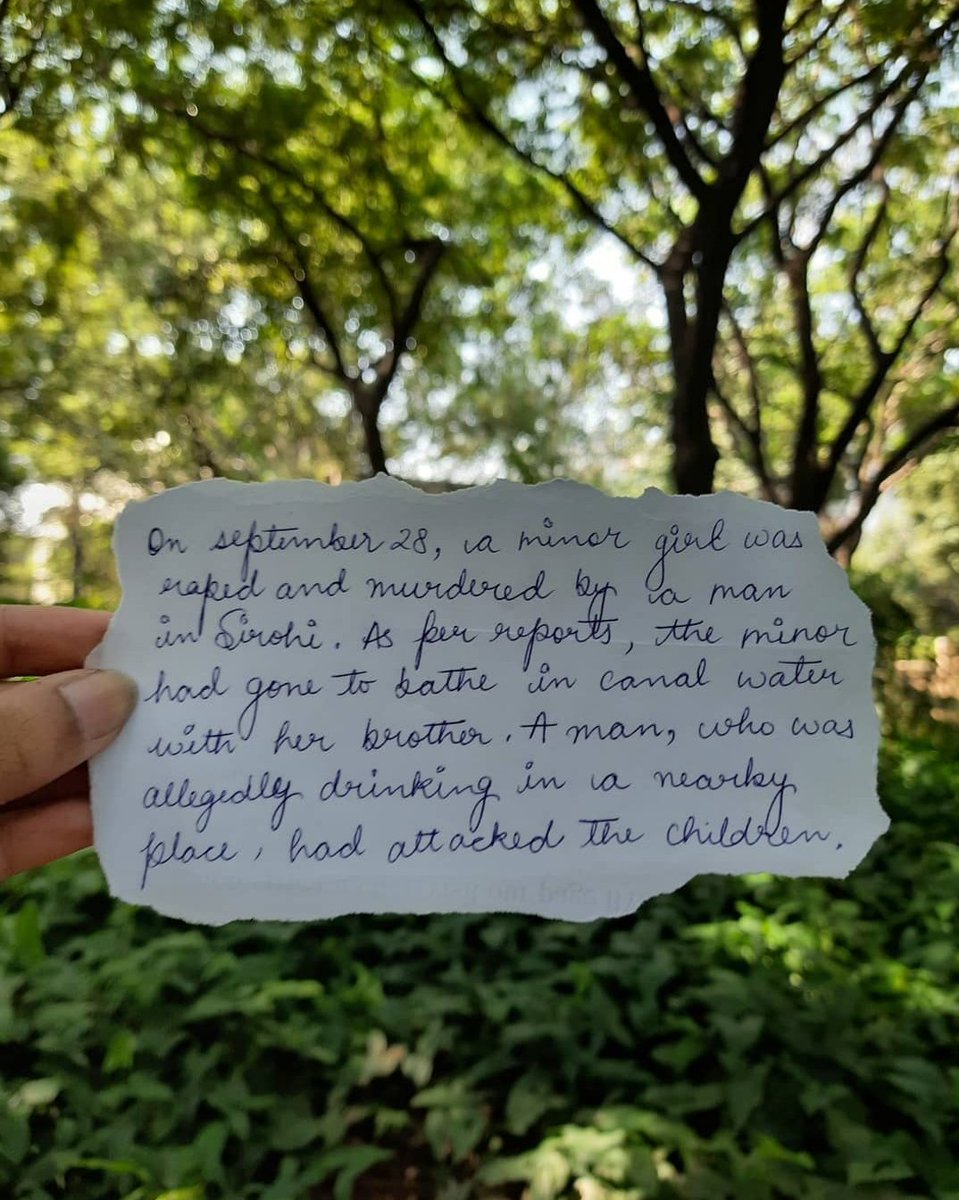 On september 28, a minor girl was
raped and murdered by a man
in Sirohi. As per reports, the minor
had gone to bathe in canal water
with her brother. A man, who was
allegedly drinking in a nearby
place, had attacked the children.